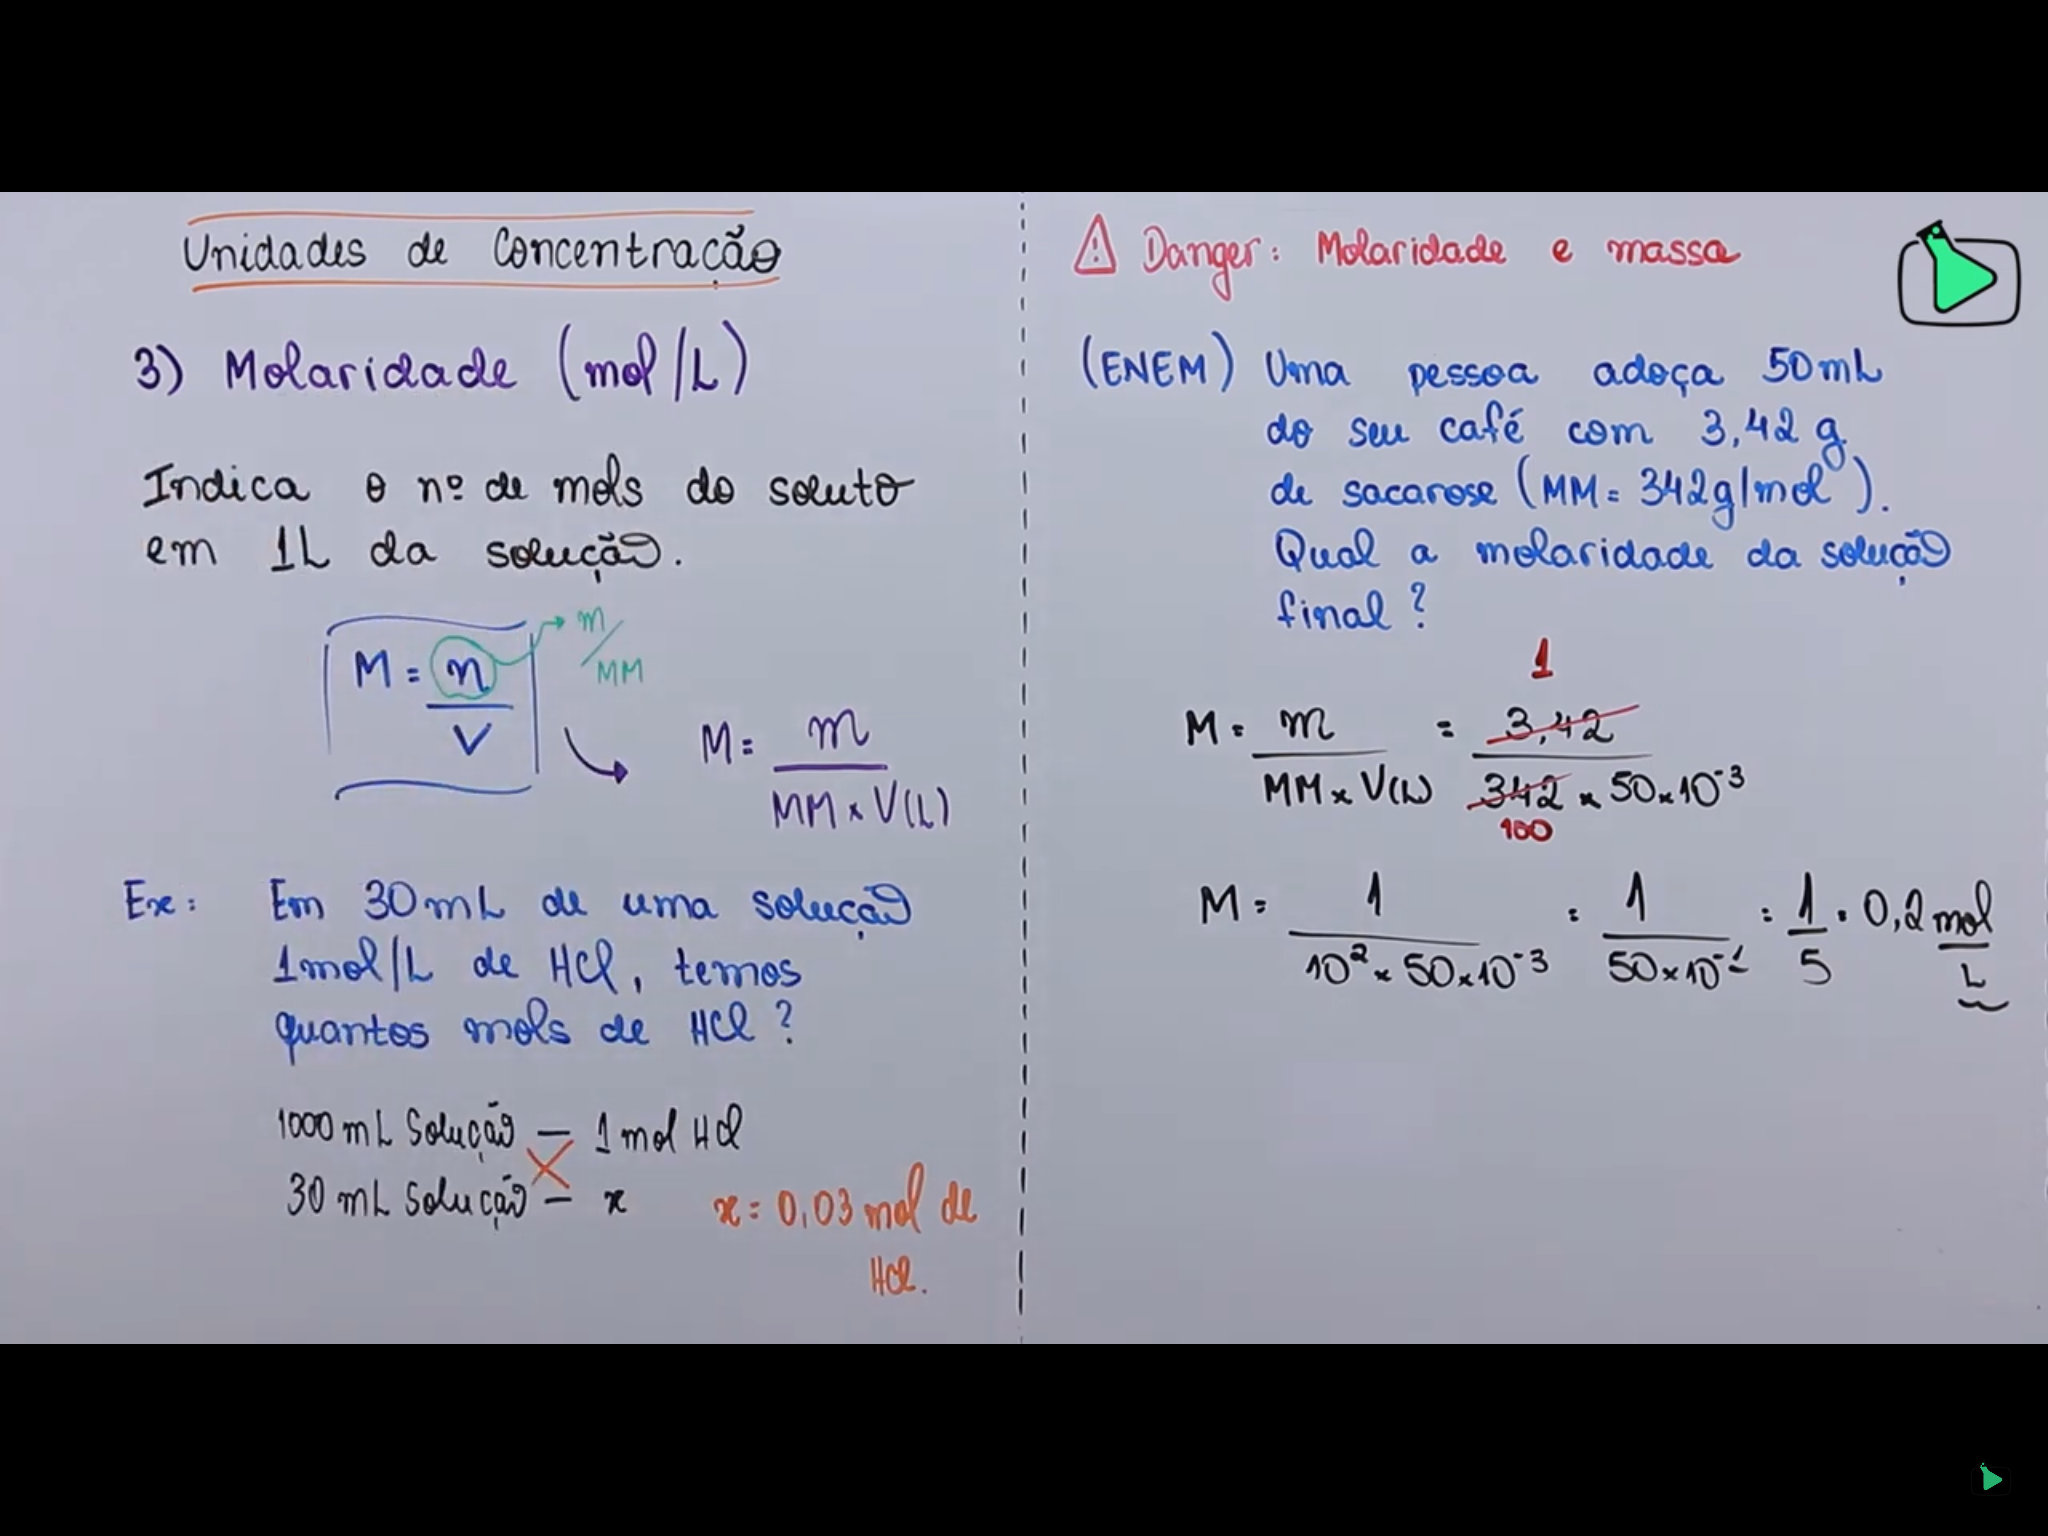 Unidades de Concentração
3) Molaridade (mol/L)
Indica o nº de mols do soluto
em 1L da solução.
M = n/V → m/MM
M = m/(MM x V(L))
Ex: Em 30mL de uma solução
1mol/L de HCl, temos
quantos mols de HCl?
1000 mL Solução — 1 mol HCl
30 mL Solução — x
x = 0,03 mol de
HCl.
⚠ Danger: Molaridade e massa
(ENEM) Uma pessoa adoça 50mL
do seu café com 3,42 g
de sacarose (MM = 342g/mol).
Qual a molaridade da solução
final?
1
M = m/(MM x V(L)) = 3,42/(342 x 50x10⁻³)
100
M = 1/(10² x 50x10⁻³) = 1/(50x10⁻¹) = 1/5 = 0,2 mol/L